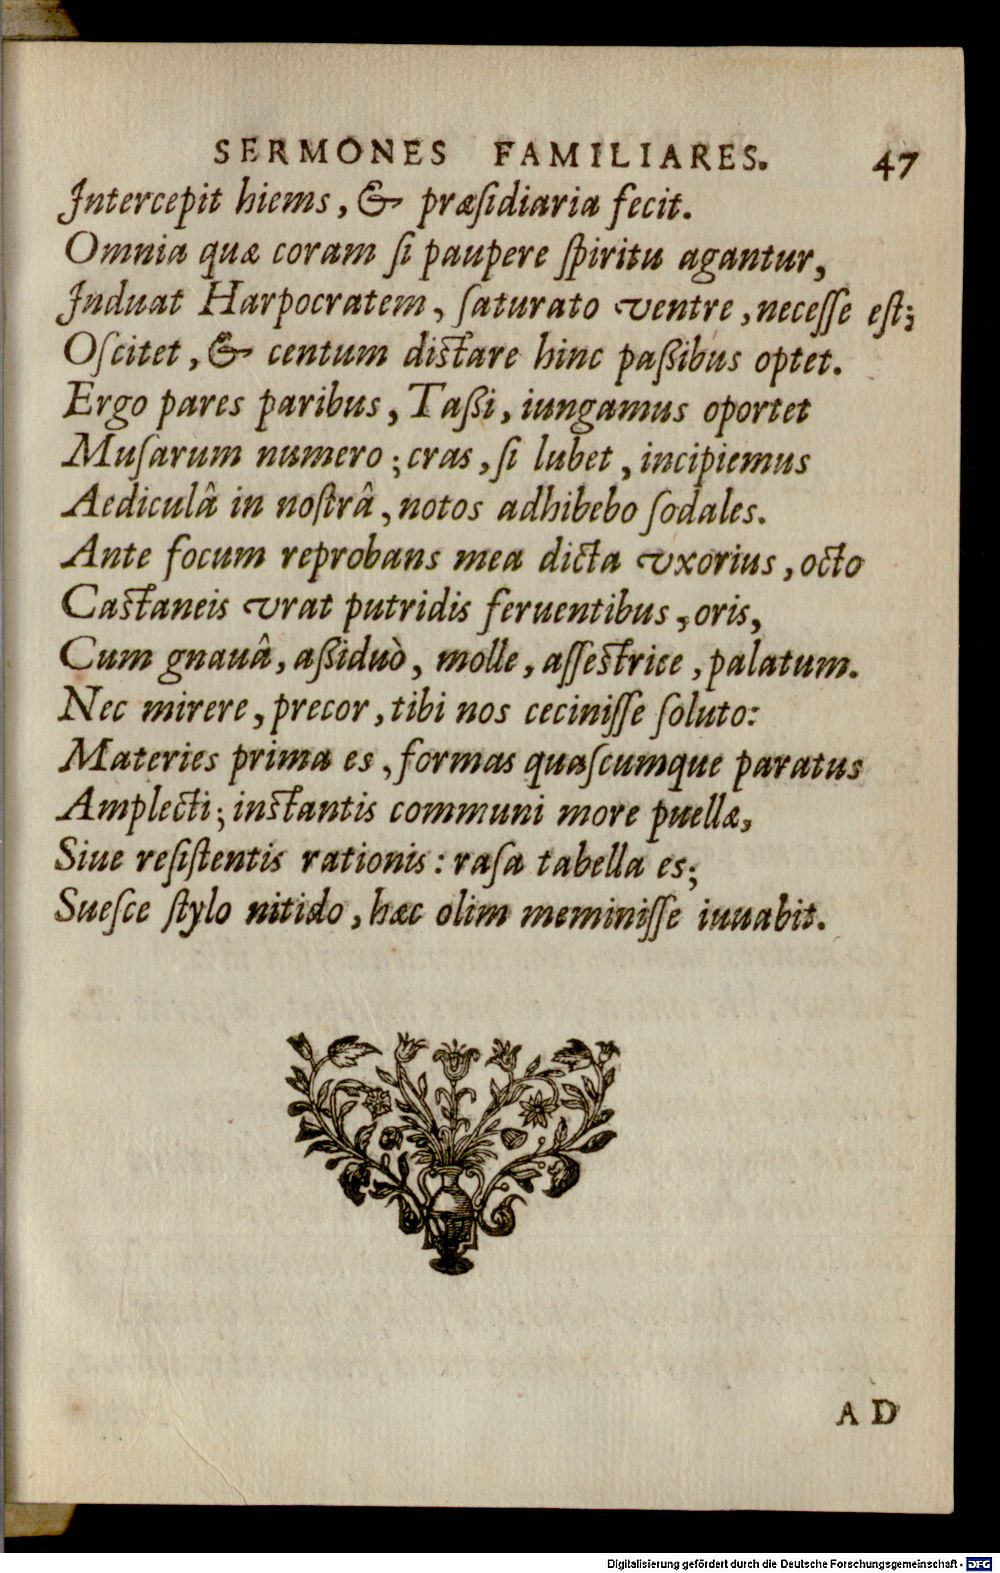 SERMONES FAMILIARES. 47
Intercepit hiems, & præſidiaria fecit.
Omnia quæ coram ſi paupere ſpiritu agantur,
Induat Harpocratem, ſaturato ventre, neceſſe eſt;
Oſcitet, & centum diſtare hinc paßibus optet.
Ergo pares paribus, Taßi, iungamus oportet
Muſarum numero; cras, ſi lubet, incipiemus
Aediculâ in noſtrâ, notos adhibebo ſodales.
Ante focum reprobans mea dicta vxorius, octo
Caſtaneis vrat putridis feruentibus, oris,
Cum gnauâ, aßiduò, molle, aſſeſtrice, palatum.
Nec mirere, precor, tibi nos ceciniſſe ſoluto:
Materies prima es, formas quaſcumque paratus
Amplecti; inſtantis communi more puellæ,
Siue reſiſtentis rationis: raſa tabella es;
Sueſce ſtylo nitido, hæc olim meminiſſe iuuabit.
AD
Digitalisierung gefördert durch die Deutsche Forschungsgemeinschaft - DFG